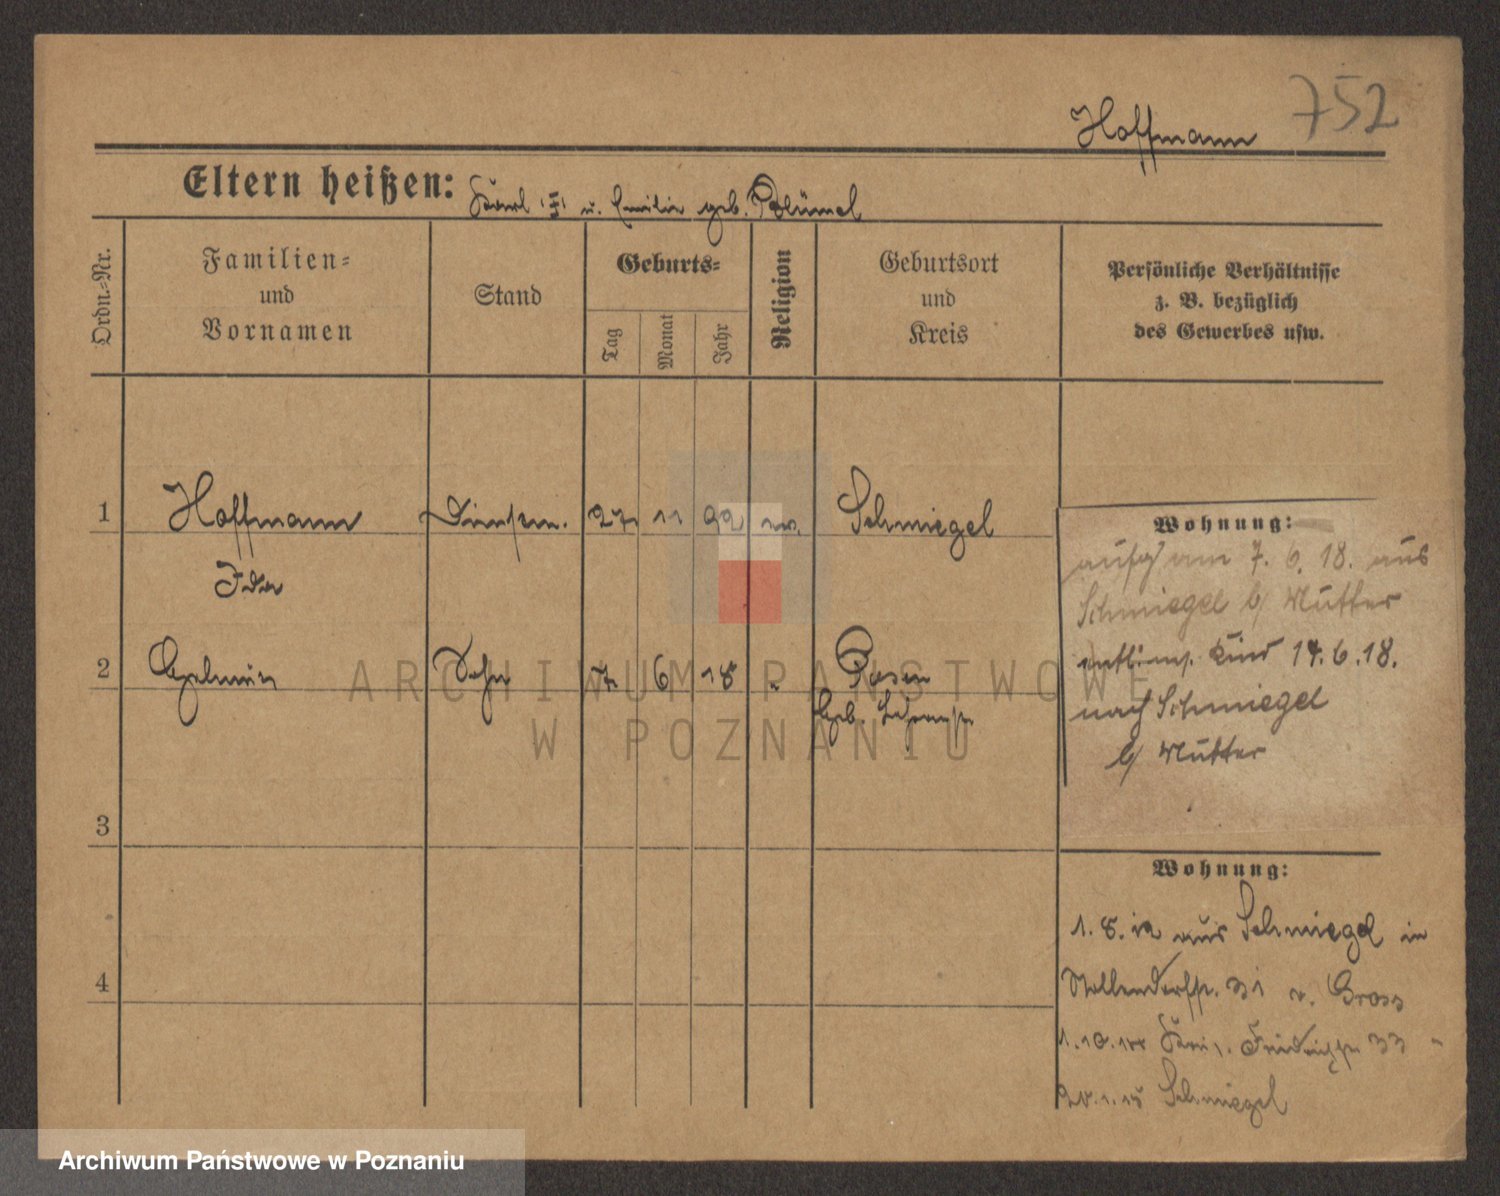 752
Hoffmann
Eltern heißen: Karl u. Emilie geb. Blümel
Ordn.-Nr.
Familien-
und
Vornamen
Stand
Geburts-
Tag
Monat
Jahr
Religion
Geburtsort
und
Kreis
Persönliche Verhältnisse
z. B. bezüglich
des Gewerbes usw.
1 Hoffmann 27 11 92 Schmiegel
Ida
2 Sohn 7 6 18 Posen
Geb.
3
4
Wohnung:
am 7. 6. 18. aus
Schmiegel b/ Mutter
Kind 14. 6. 18.
nach Schmiegel
b/ Mutter
Wohnung:
1. 8. 12 aus Schmiegel in
31 v. Gross
33 "
Schmiegel
ARCHIWUM PAŃSTWOWE
W POZNANIU
Archiwum Państwowe w Poznaniu